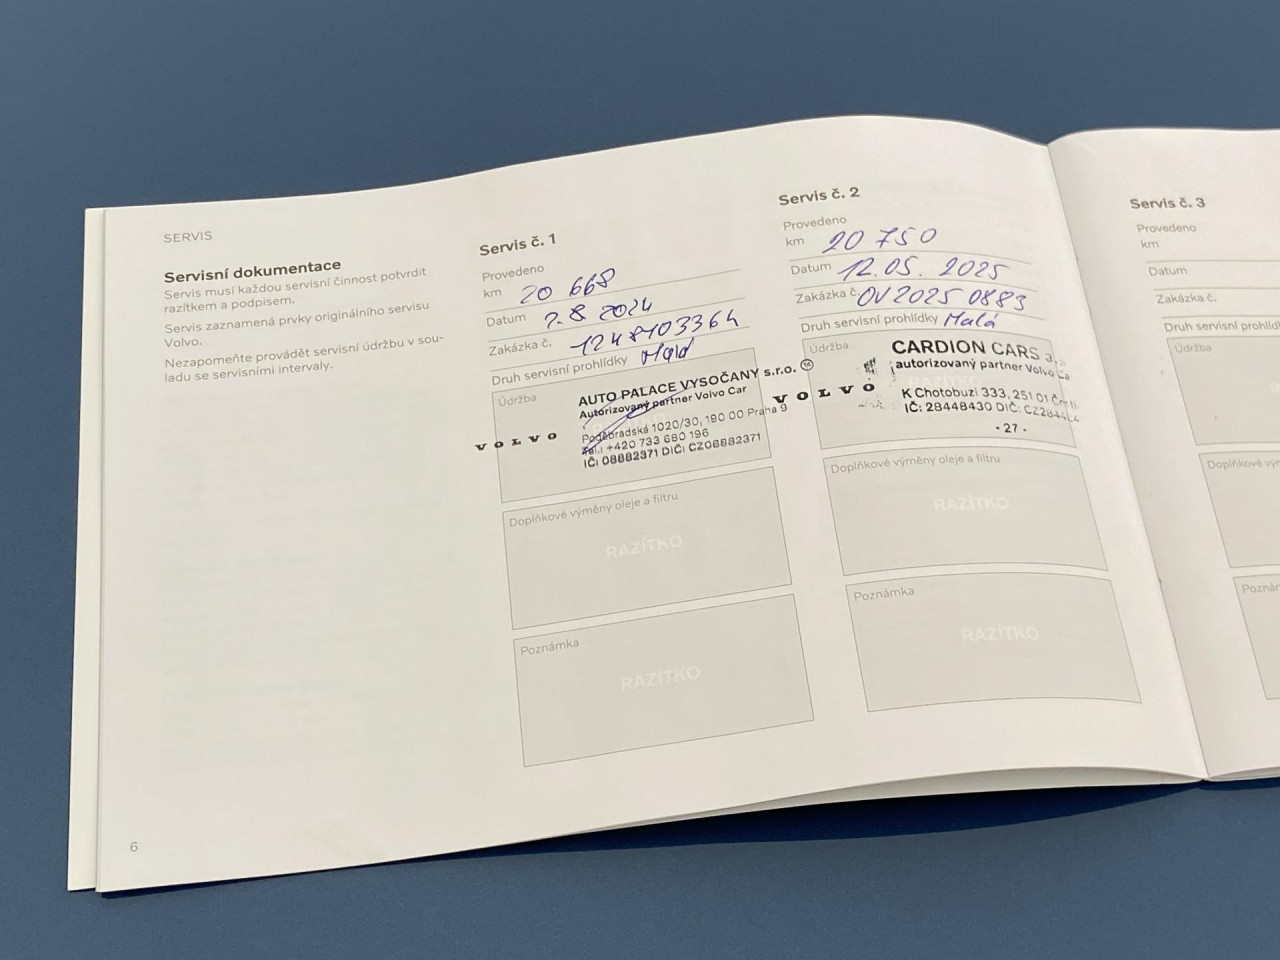 SERVIS
Servisní dokumentace
Servis musí každou servisní činnost potvrdit
razítkem a podpisem.
Servis zaznamená prvky originálního servisu
Volvo.
Nezapomeňte provádět servisní údržbu v sou-
ladu se servisními intervaly.
6
Servis č. 1
Provedeno
km 20 668
Datum 7.8 2024
Zakázka č. 1248103364
Druh servisní prohlídky Malá
Údržba
AUTO PALACE VYSOČANY s.r.o. 14
Autorizovaný partner Volvo Car
VOLVO
Poděbradská 1020/30, 190 00 Praha 9
Tel.: +420 733 680 196
IČ: 08882371 DIČ: CZ08882371
Doplňkové výměny oleje a filtru
RAZÍTKO
Poznámka
RAZÍTKO
Servis č. 2
Provedeno
km 20 750
Datum 12.05. 2025
Zakázka č. OV2025 0883
Druh servisní prohlídky Malá
Údržba
CARDION CARS
autorizovaný partner Volvo
VOLVO
K Chotobuzi 333, 251 01
IČ: 28448430 DIČ:
- 27 -
Doplňkové výměny oleje a filtru
RAZÍTKO
Poznámka
RAZÍTKO
Servis č. 3
Provedeno
km
Datum
Zakázka č.
Druh servisní
Údržba
Doplňkové